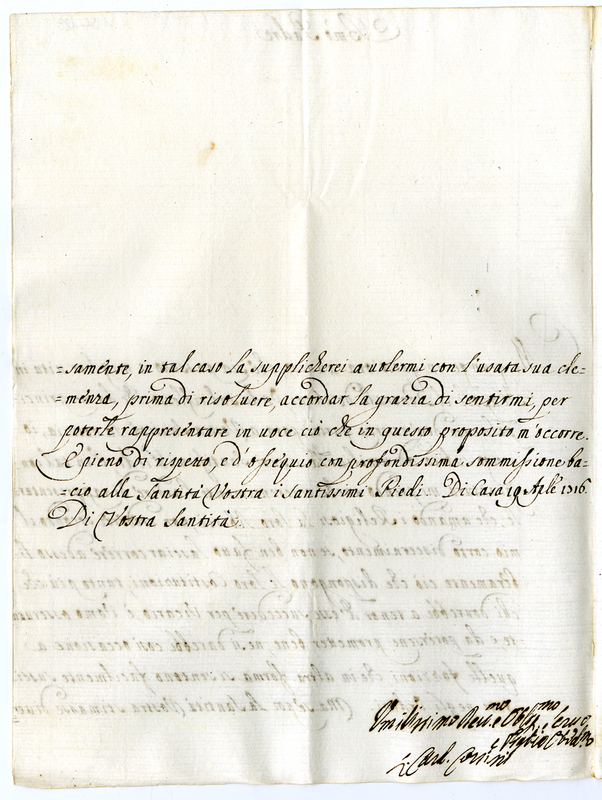 =samente, in tal caso la supplicherei a volermi con l'usata sua cle=
=menza, prima di risolvere, accordar la grazia di sentirmi, per
poterle rappresentare in voce ciò che in questo proposito m'occorre.
E pieno di rispetto, e d'ossequio con profondissima sommissione ba=
=cio alla Santità Vostra i Santissimi Piedi. Di Casa 19 Aple
Di Vostra Santità.
Umilissimo Dev.mo e Oblig.mo
Card. Corsini